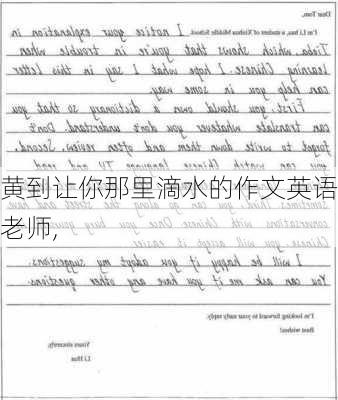 Dear Tom,
I'm Li Hua, a student of Xinhua Middle School. I notice your explanation in
Tieba, which shows that you're in trouble when
learning Chinese. I hope what I say in this letter
can help you in some way.
First, you should own a dictionary so that you
can translate whatever you don't understand. Don't
forget to write down them and often review. Second,
you can watch Chinese
黄到让你那里滴水的作文英语
老师,
conversations with Chinese. Once you
Chinese you will accept it easier.
I will be happy if you adopt my suggestions.
You can ask me if you have any other questions.
I'm looking forward to your early reply.
Best wishes!
Yours sincerely,
Li Hua